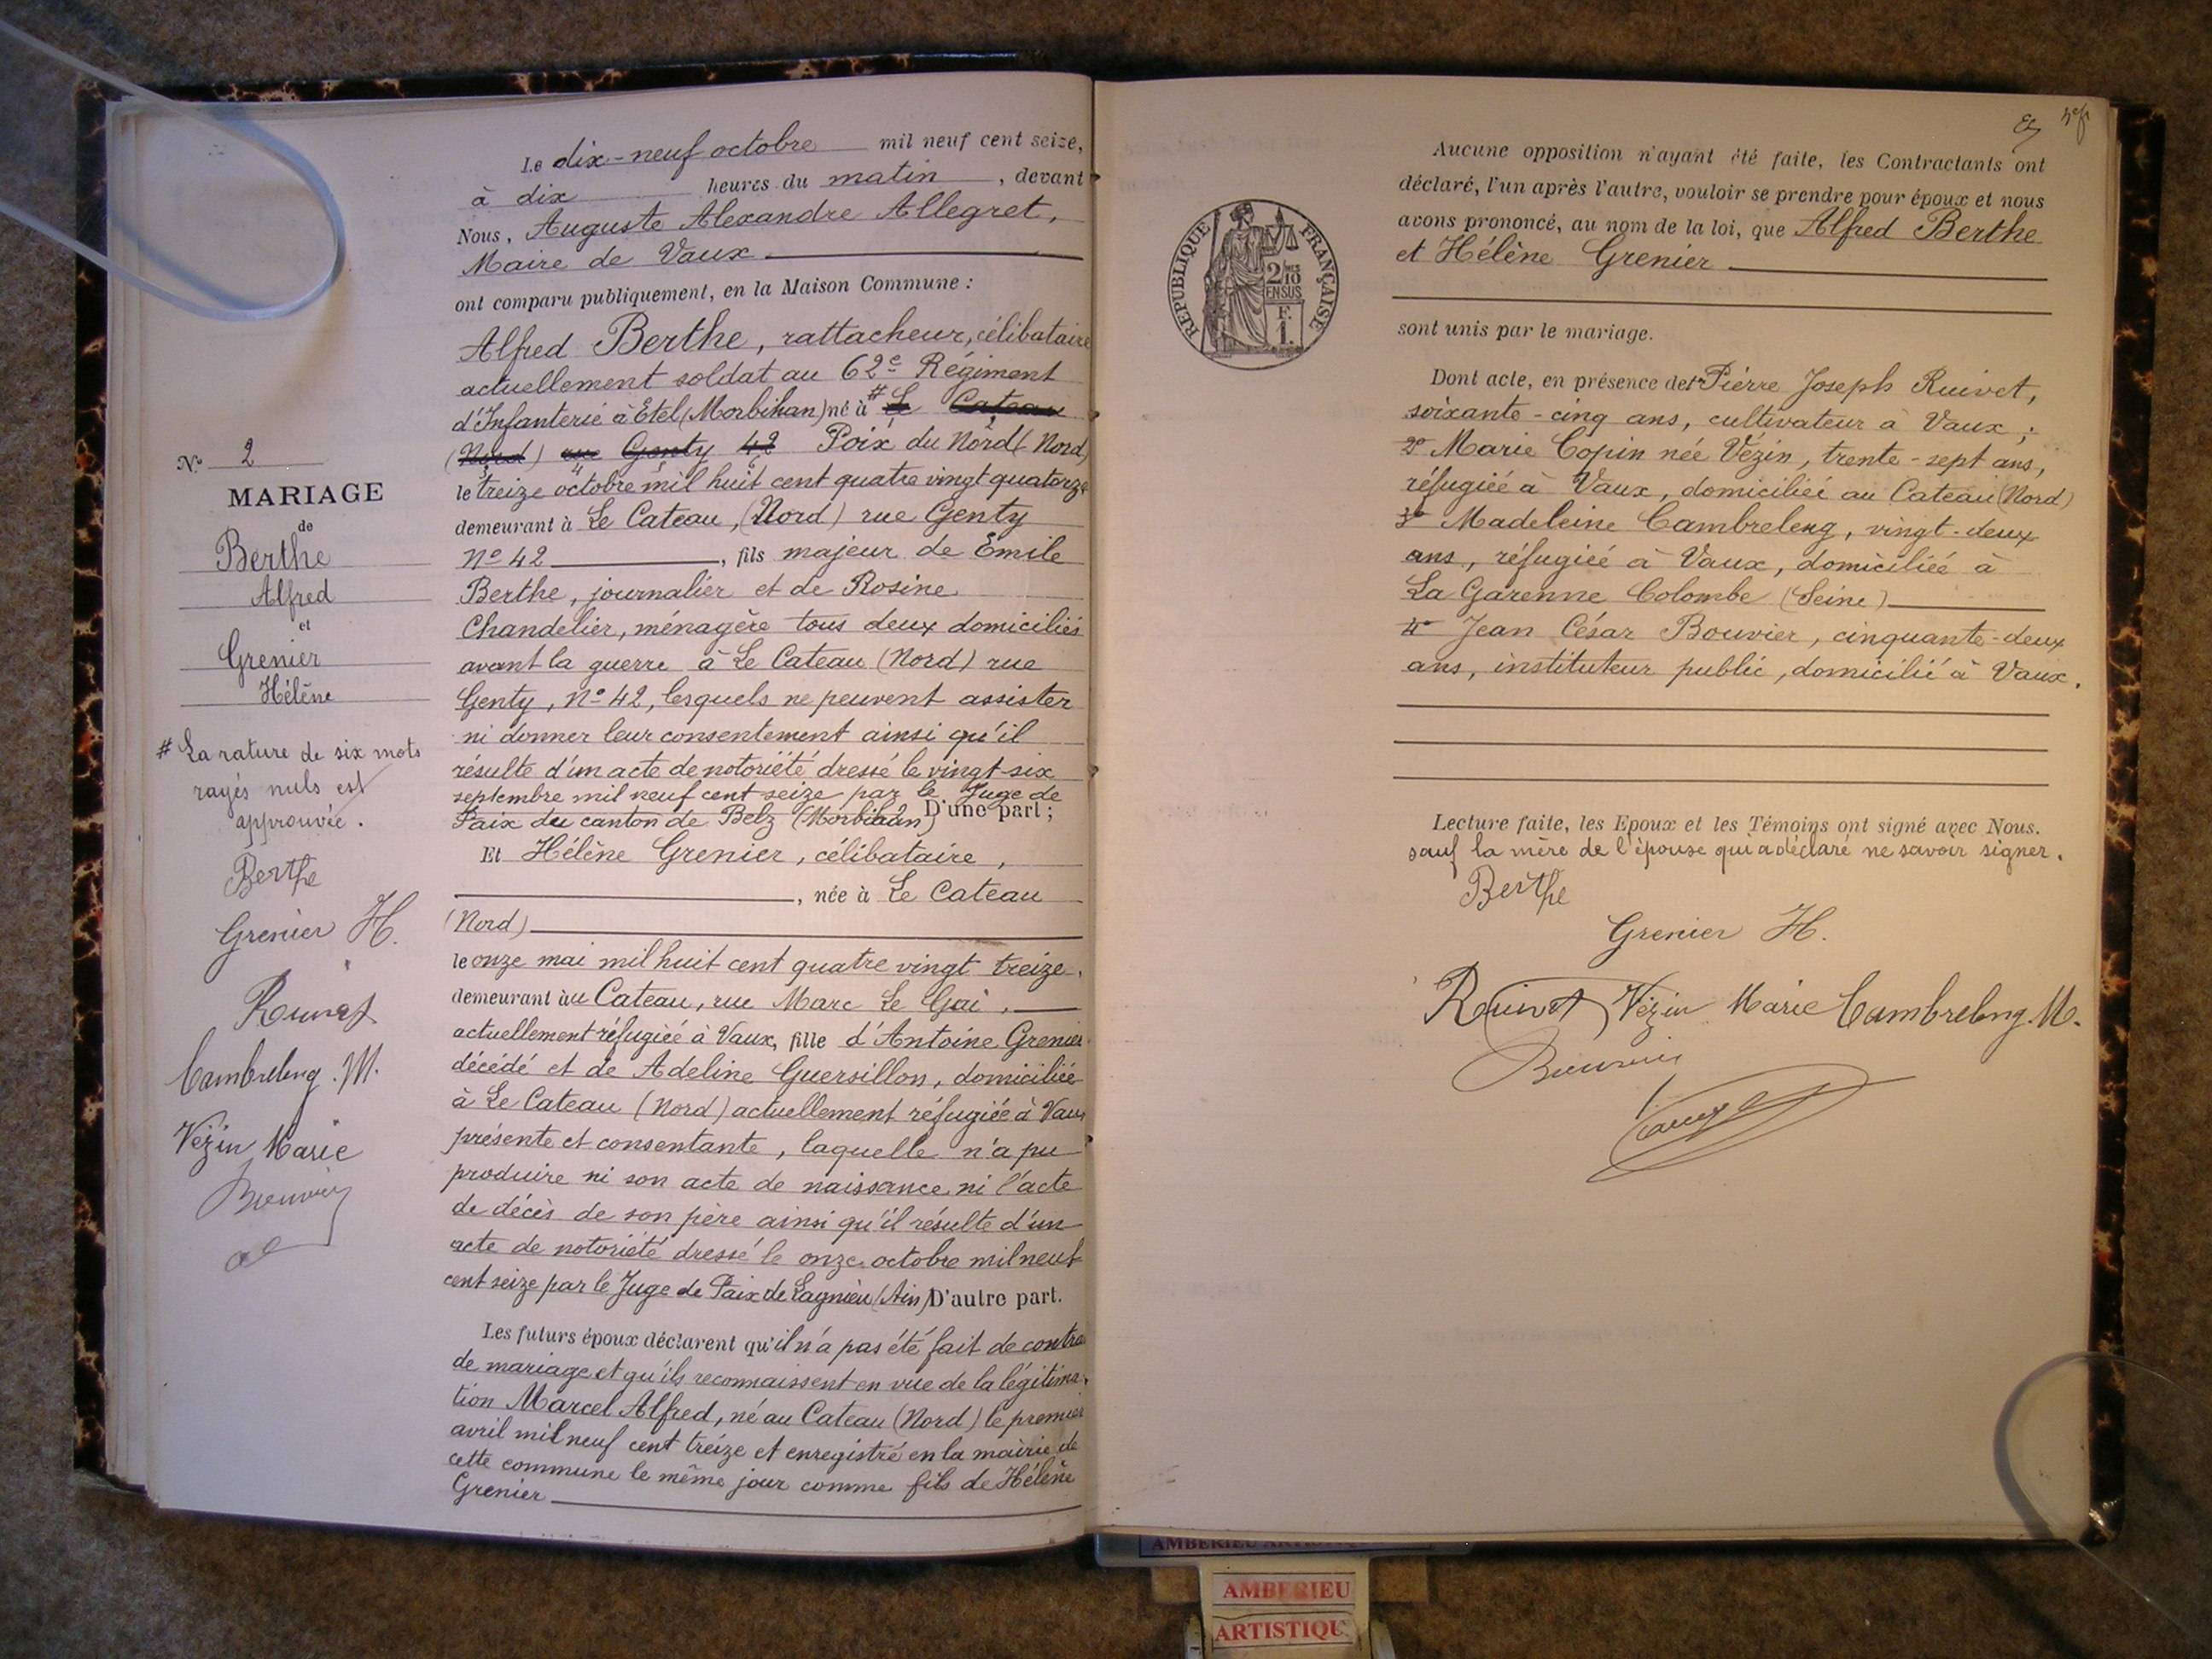 N° 2
MARIAGE
de
Berthe
Alfred
et
Grenier
Hélène
# La rature de six mots
rayés nuls est
approuvée.
Berthe
Grenier H.
Ruivet
Cambreleng. M.
Vézin Marie
Bouvier
Le dix-neuf octobre mil neuf cent seize,
à dix heures du matin, devant
Nous, Auguste Alexandre Allegret,
Maire de Vaux
ont comparu publiquement, en la Maison Commune :
Alfred Berthe, rattacheur, célibataire
actuellement soldat au 62e Régiment
d'Infanterie à Etel (Morbihan) né à # Le Cateau
(Nord) rue Genty 42 Poix du Nord (Nord)
le treize octobre mil huit cent quatre vingt quatorze
demeurant à Le Cateau, (Nord) rue Genty
No 42, fils majeur de Emile
Berthe, journalier et de Rosine
Chandelier, ménagère tous deux domiciliés
avant la guerre à Le Cateau (Nord) rue
Genty, No 42, lesquels ne peuvent assister
ni donner leur consentement ainsi qu'il
résulte d'un acte de notoriété dressé le vingt-six
septembre mil neuf cent seize par le Juge de
Paix du canton de Belz (Morbihan) D'une part ;
Et Hélène Grenier, célibataire,
, née à Le Cateau
(Nord)
le onze mai mil huit cent quatre vingt treize,
demeurant au Cateau, rue Marc Le Gai,
actuellement réfugiée à Vaux, fille d'Antoine Grenier
décédé et de Adeline Guersillon, domiciliée
à Le Cateau (Nord) actuellement réfugiée à Vaux
présente et consentante, laquelle n'a pu
produire ni son acte de naissance ni l'acte
de décès de son père ainsi qu'il résulte d'un
acte de notoriété dressé le onze octobre mil neuf
cent seize par le Juge de Paix de Lagnieu (Ain) D'autre part.
Les futurs époux déclarent qu'il n'a pas été fait de contrat
de mariage et qu'ils reconnaissent en vue de la légitima-
tion Marcel Alfred, né au Cateau (Nord) le premier
avril mil neuf cent treize et enregistré en la mairie de
cette commune le même jour comme fils de Hélène
Grenier
RÉPUBLIQUE FRANÇAISE
2/10 MES
EN SUS
F.
1.
Aucune opposition n'ayant été faite, les Contractants ont
déclaré, l'un après l'autre, vouloir se prendre pour époux et nous
avons prononcé, au nom de la loi, que Alfred Berthe
et Hélène Grenier
sont unis par le mariage.
Dont acte, en présence de 1° Pierre Joseph Ruivet,
soixante-cinq ans, cultivateur à Vaux ;
2° Marie Copin née Vézin, trente-sept ans,
réfugiée à Vaux, domiciliée au Cateau (Nord)
3° Madeleine Cambreleng, vingt-deux
ans, réfugiée à Vaux, domiciliée à
La Garenne Colombe (Seine)
4° Jean César Bouvier, cinquante-deux
ans, instituteur public, domicilié à Vaux.
Lecture faite, les Epoux et les Témoins ont signé avec Nous.
sauf la mère de l'épouse qui a déclaré ne savoir signer.
Berthe
Grenier H.
Ruivet Vézin Marie Cambreleng. M.
Bouvier
AMBERIEU ARTISTIQUE
AMBERIEU
ARTISTIQU